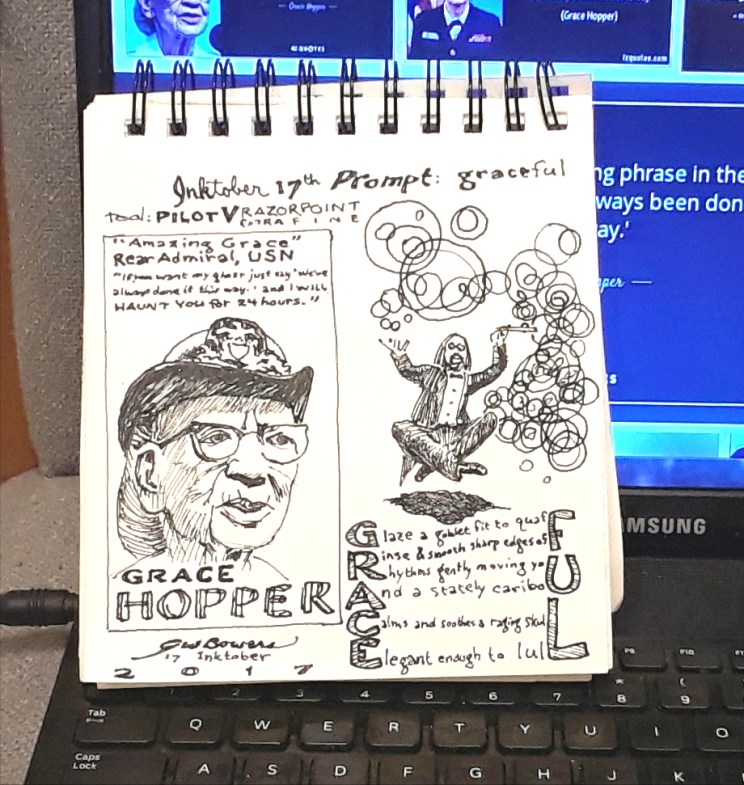 Grace Hopper
AZ QUOTES
(Grace Hopper)
izquotes.com
Inktober 17th Prompt: graceful
tool: PILOT V RAZORPOINT
EXTRA FINE
"Amazing Grace"
Rear Admiral, USN
"If you want my ghost just say 'We've
always done it this way.' and I WILL
HAUNT YOU for 24 hours."
GRACE
HOPPER
GW Bowers
'17 Inktober
2017
Glaze a goblet fit to quaf F
Rinse & smooth sharp edges of
Rhythms gently moving yo U
And a stately caribo
Calms and soothes a raging skul L
Elegant enough to lul
ng phrase in the
ways been don
ay.'
per —
s
SAMSUNG
Tab
Caps
Lock
1 2 3 4 5 6 7 8 9
* (
F9 F10
Q W E R T Y U I O
A S D F G H J K